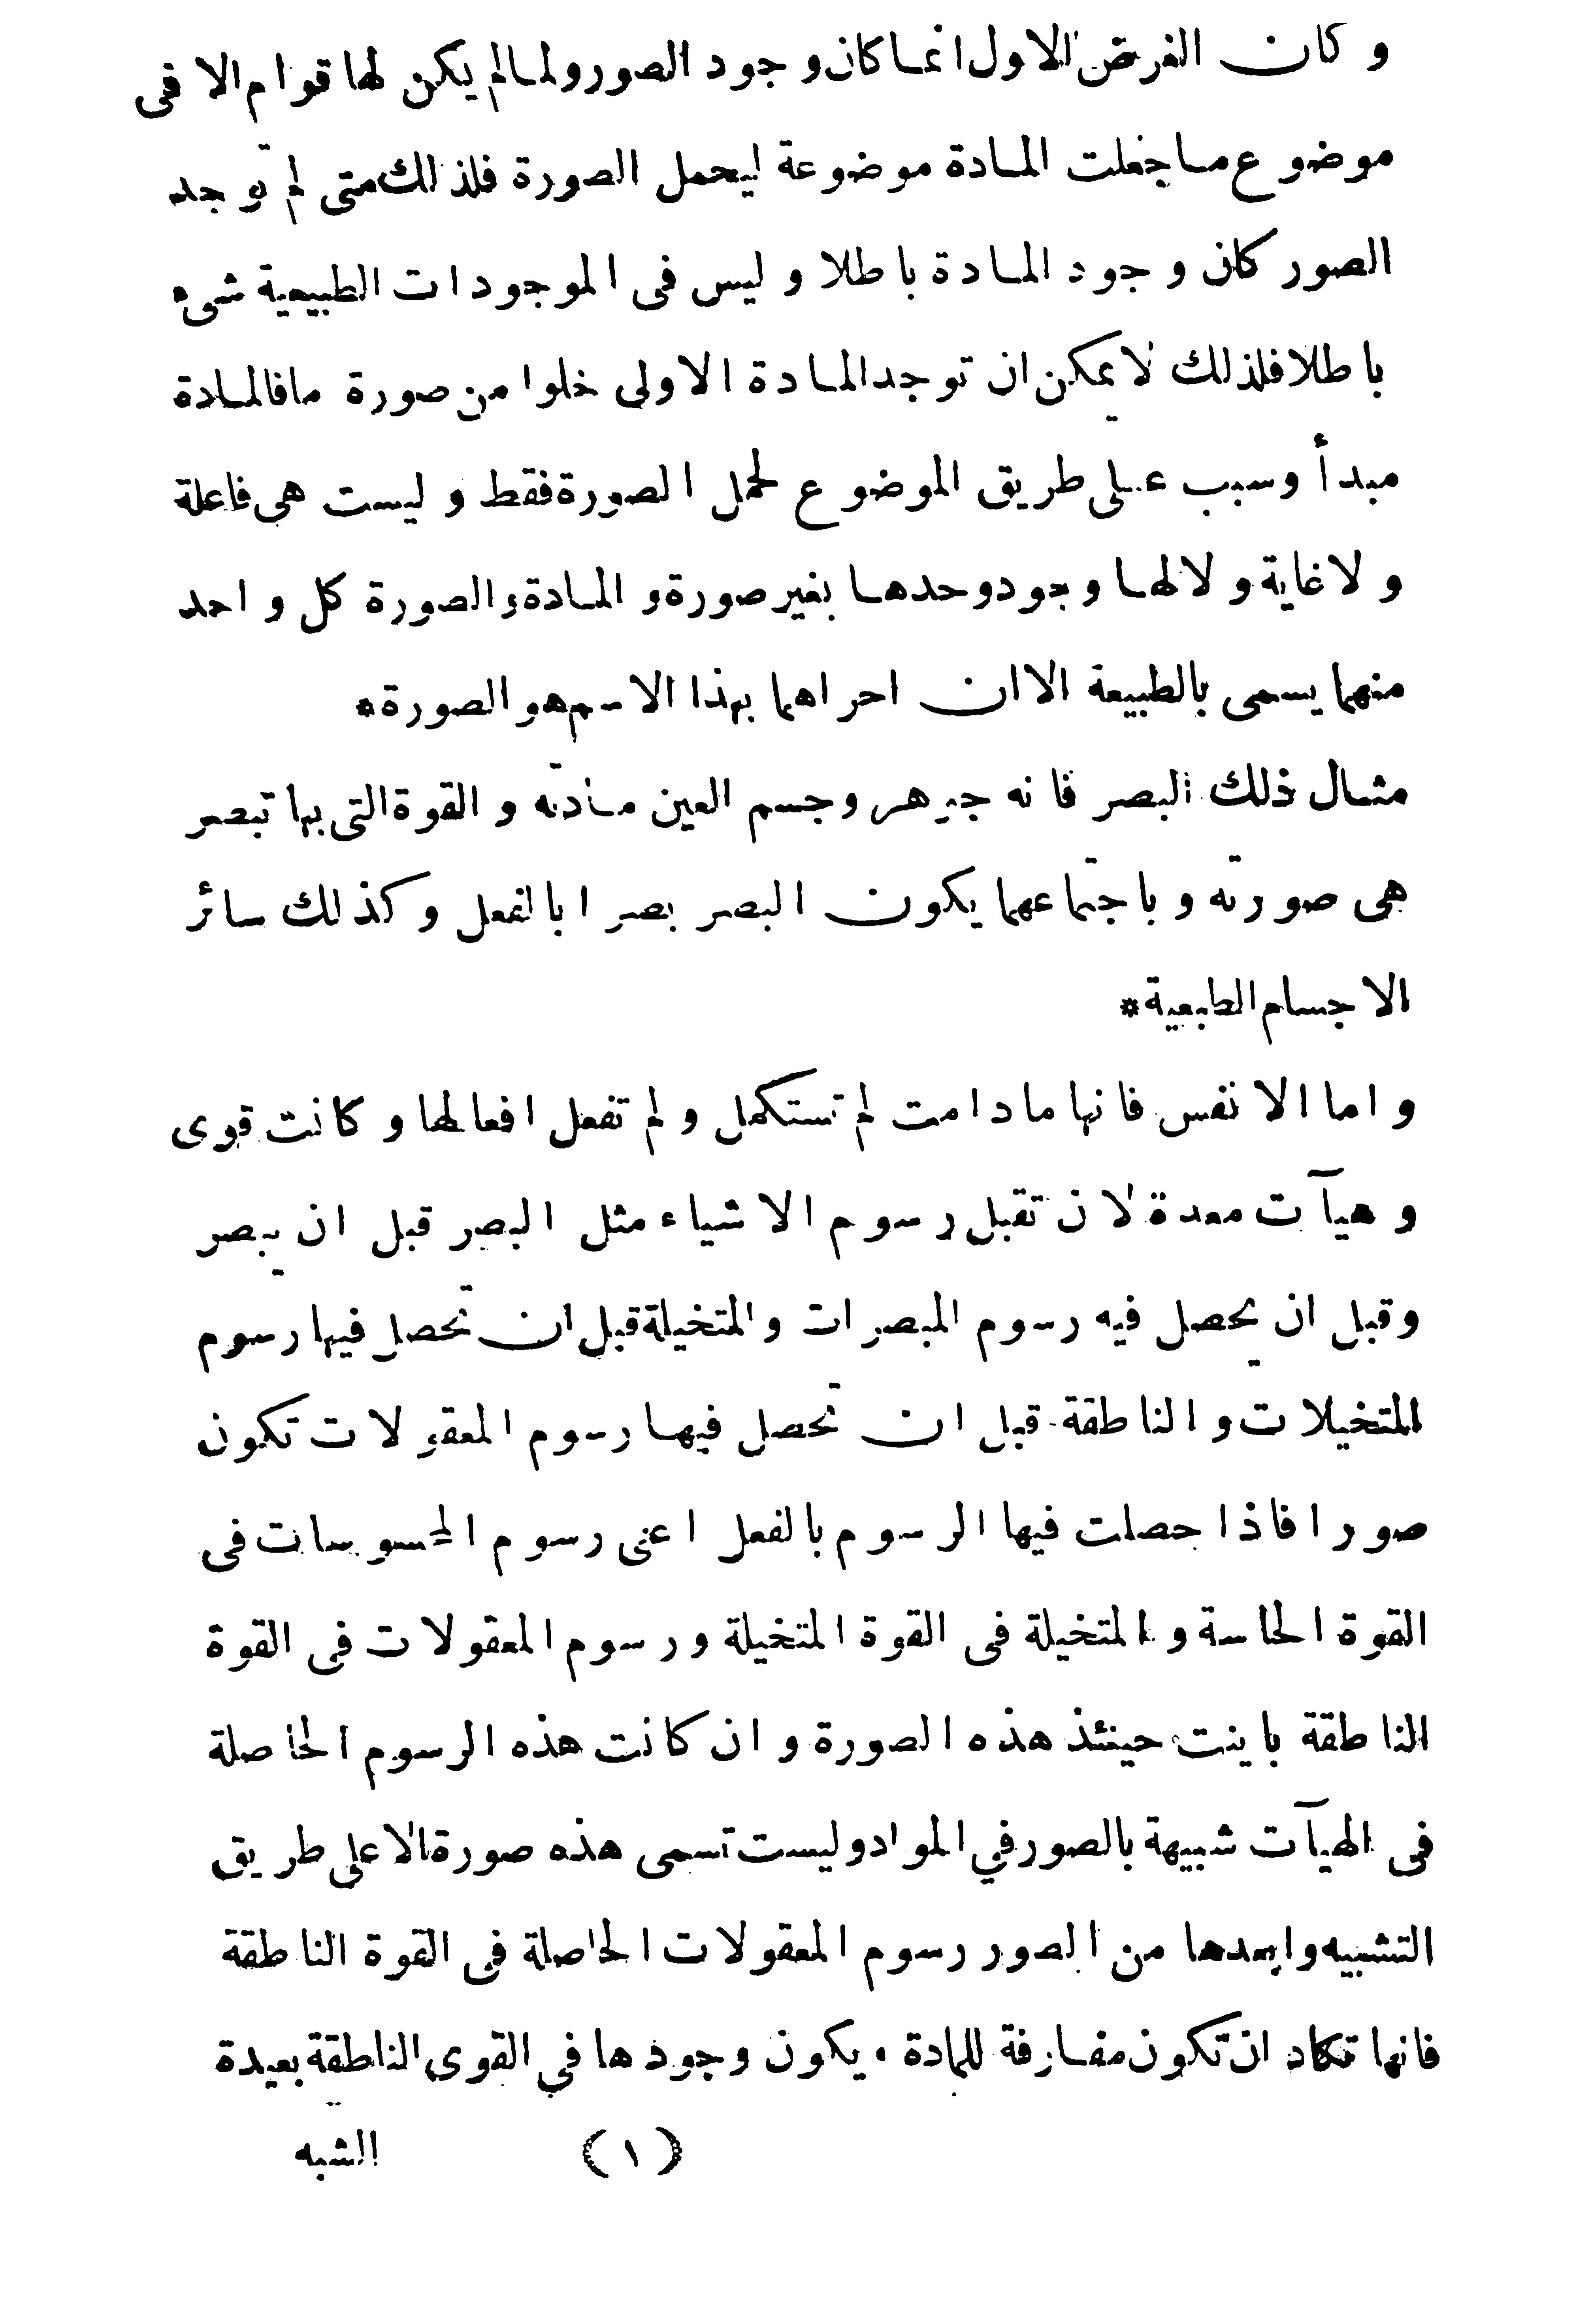 وكان الغرض الاول انما كان وجود الصور ولما لم يكن لها قوام الا فى
موضوع ما جعلت المادة موضوعة ليحمل الصورة فلذلك متى لم توجد
الصور كان وجود المادة باطلا وليس فى الموجودات الطبيعية شىء
باطلا فلذلك لا يمكن ان توجد المادة الاولى خلوا من صورة ما فالمادة
مبدأ وسبب على طريق الموضوع لحمل الصورة فقط وليست هى فاعلة
ولا غاية ولا لها وجود وحدها بغير صورة والمادة والصورة كل واحد
منهما يسمى بالطبيعة الا ان احراهما بهذا الاسم هو الصورة *
مثال ذلك البصر فانه جوهر وجسم العين مادته والقوة التى بها تبصر
هى صورته وباجتماعهما يكون البصر بصرا بالفعل وكذلك سائر
الاجسام الطبعية *
واما الانفس فانها ما دامت لم تستكمل ولم تفعل افعالها وكانت قوى
وهيآت معدة لان تقبل رسوم الاشياء مثل البصر قبل ان يبصر
وقبل ان يحصل فيه رسوم المبصرات والمتخيلة قبل ان تحصل فيها رسوم
المتخيلات والناطقة قبل ان تحصل فيها رسوم المعقولات تكون
صورا فاذا حصلت فيها الرسوم بالفعل اعنى رسوم المحسوسات فى
القوة الحاسة والمتخيلة فى القوة المتخيلة ورسوم المعقولات فى القوة
الناطقة باينت حينئذ هذه الصورة وان كانت هذه الرسوم الحاصلة
فى الهيآت شبيهة بالصور في المواد وليست تسمى هذه صورة الا على طريق
التشبيه وابعدها من الصور رسوم المعقولات الحاصلة فى القوة الناطقة
فانها تكاد ان تكون مفارقة للمادة ويكون وجودها في القوى الناطقة بعيدة
(١) الشبه